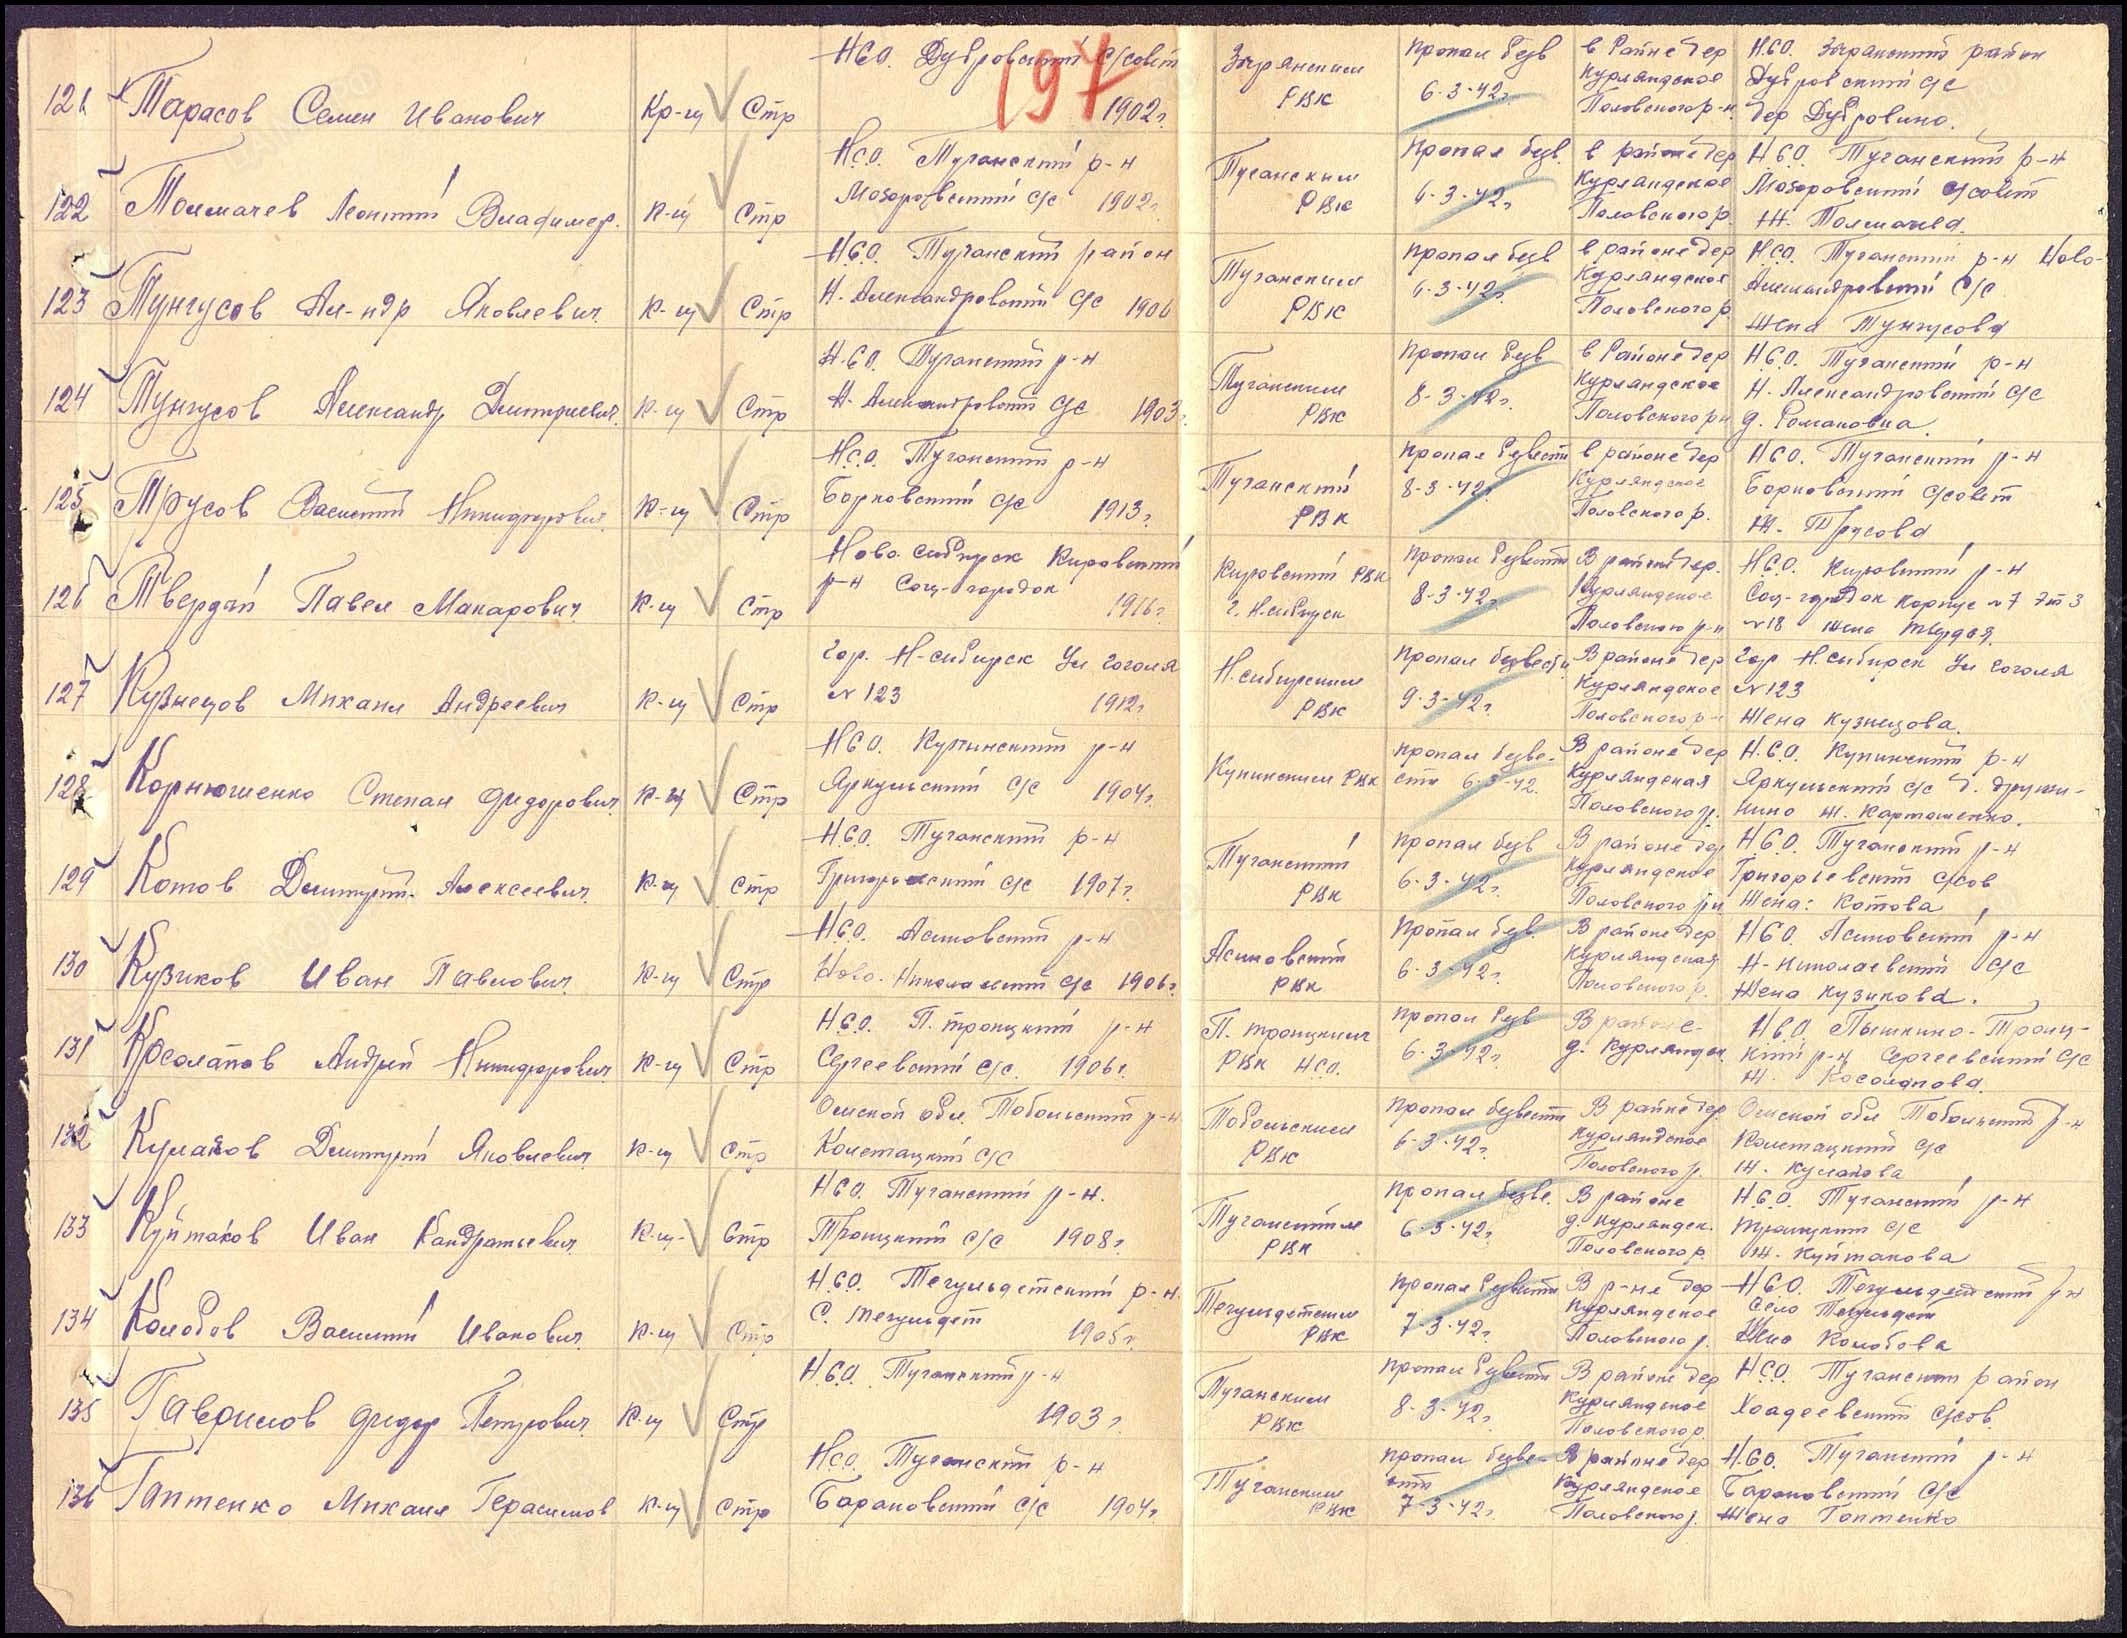 197
121 Тарасов Семен Иванович Кр-ц Стр НСО. Дубровский с/совет 1902г. Зырянским РВК Пропал безв 6-3-42г. в Районе дер Курляндское Половского р-н. НСО. Зырянский район Дубровский с/с дер Дубровино.
122 Толмачев Леонтий Владимер. К-ц Стр НСО. Туганский р-н Мазоровский с/с 1902г. Туганским РВК Пропал безв. 6-3-42г. в районе дер Курляндское Половского р. НСО. Туганский р-н Мазоровский с/совет Ж. Толмачева.
123 Тунгусов Ал-ндр Яковлевич К-ц Стр НСО. Туганский район Н. Александровский с/с 1906 Туганским РВК Пропал безв 6-3-42г. в районе дер Курляндское Половского р. НСО. Туганский р-н Ново-Александровский с/с Жена Тунгусова
124 Тунгусов Александр Дмитриевич К-ц Стр НСО. Туганский р-н Н. Александровский с/с 1903г. Туганским РВК Пропал безв 8-3-42г. в Районе дер Курляндское Половского рн НСО. Туганский р-н Н. Александровский с/с д. Романовка
125 Трусов Василий Никифорович К-ц Стр НСО. Туганский р-н Борковский с/с 1913г. Туганский РВК Пропал безвести 8-3-42г. в районе дер Курляндское Половского р. НСО. Туганский р-н Борковский с/совет Ж. Трусова
126 Твердай Павел Макарович К-ц Стр Ново-сибирск Кировский р-н Соц-городок 1916г. Кировский РВК г. Н.сибирск Пропал безвести 8-3-42г. В районе дер. Курляндское Половского р-н НСО. Кировский р-н Соц-городок корпус №7 Эт 3 №18 жена Твердая
127 Кузнецов Михаил Андреевич К-ц Стр Гор. Н-сибирск Ул Гоголя №123 1912г. Н.сибирским РВК Пропал безвести 9-3-42г. В районе дер Курляндское Половского р- Гор Н.сибирск Ул Гоголя №123 Жена Кузнецова.
128 Корнюшенко Степан Фидорович К-ц Стр НСО. Купинский р-н Яркульский с/с 1904г. Купинским РВК Пропал безвести 6-3-42. В районе дер Курляндская Половского р. Н.С.О. Купинский р-н Яркульский с/с д. Дружинино Ж. Картошенко.
129 Котов Дмитрий Алексеевич К-ц Стр НСО. Туганский р-н Григорьевский с/с 1907г. Туганский РВК Пропал безв 6-3-42г. В районе дер Курляндское Половского рн НСО. Туганский р-н Григорьевский с/сов Жена: Котова
130 Кузиков Иван Павлович К-ц Стр НСО. Асиновский р-н Ново-Николаевский с/с 1906г. Асиновский РВК Пропал безв. 6-3-42г. В районе дер Курляндская Половского р. НСО. Асиновский р-н Н-Николаевский с/с Жена Кузикова.
131 Косолапов Андрей Никифорович К-ц Стр НСО. П. троицкий р-н Сергеевский с/с. 1906г. П. троицким РВК НСО. Пропал безв 6-3-42г. В районе д. Курляндск НСО. Пышкино-Троицкий р-н Сергеевский с/с Ж. Косолапова
132 Кулаков Дмитрий Яковлевич К-ц Стр Омской обл. Тобольский р-н с/с Тобольским РВК Пропал безвести 6-3-42г. В районе дер Курляндское Половского р. Омской обл Тобольский р-н с/с Ж. Кулакова
133 Куйтаков Иван Кандратьевич К-ц- Стр НСО. Туганский р-н. Троицкий с/с 1908г. Туганским РВК Пропал безве. 6-3-42г. В районе д. Курляндск. Половского р. НСО. Туганский р-н Троицкий с/с Ж. Куйтакова
134 Колобов Василий Иванович К-ц Стр НСО. Тегульдетский р-н. С. Тегульдет 1905г. Тегульдетским РВК Пропал безвести 7-3-42г. В р-не дер Курляндское Половского р. НСО. Тегульдетский р-н Село Тегульдет Жена Колобова
135 Гаврилов Фидор Петрович К-ц Стр НСО. Туганский р-н 1903г. Туганским РВК Пропал безвести 8-3-42г. В районе дер Курляндское Половского р. НСО. Туганский район с/сов.
136 Гаптенко Михаил Герасимов К-ц Стр НСО. Туганский р-н Барановский с/с 1904г. Туганским РВК Пропал безвести 7-3-42г. В районе дер Курляндское Половского р. НСО. Туганский р-н Барановский с/с Жена Гаптенко